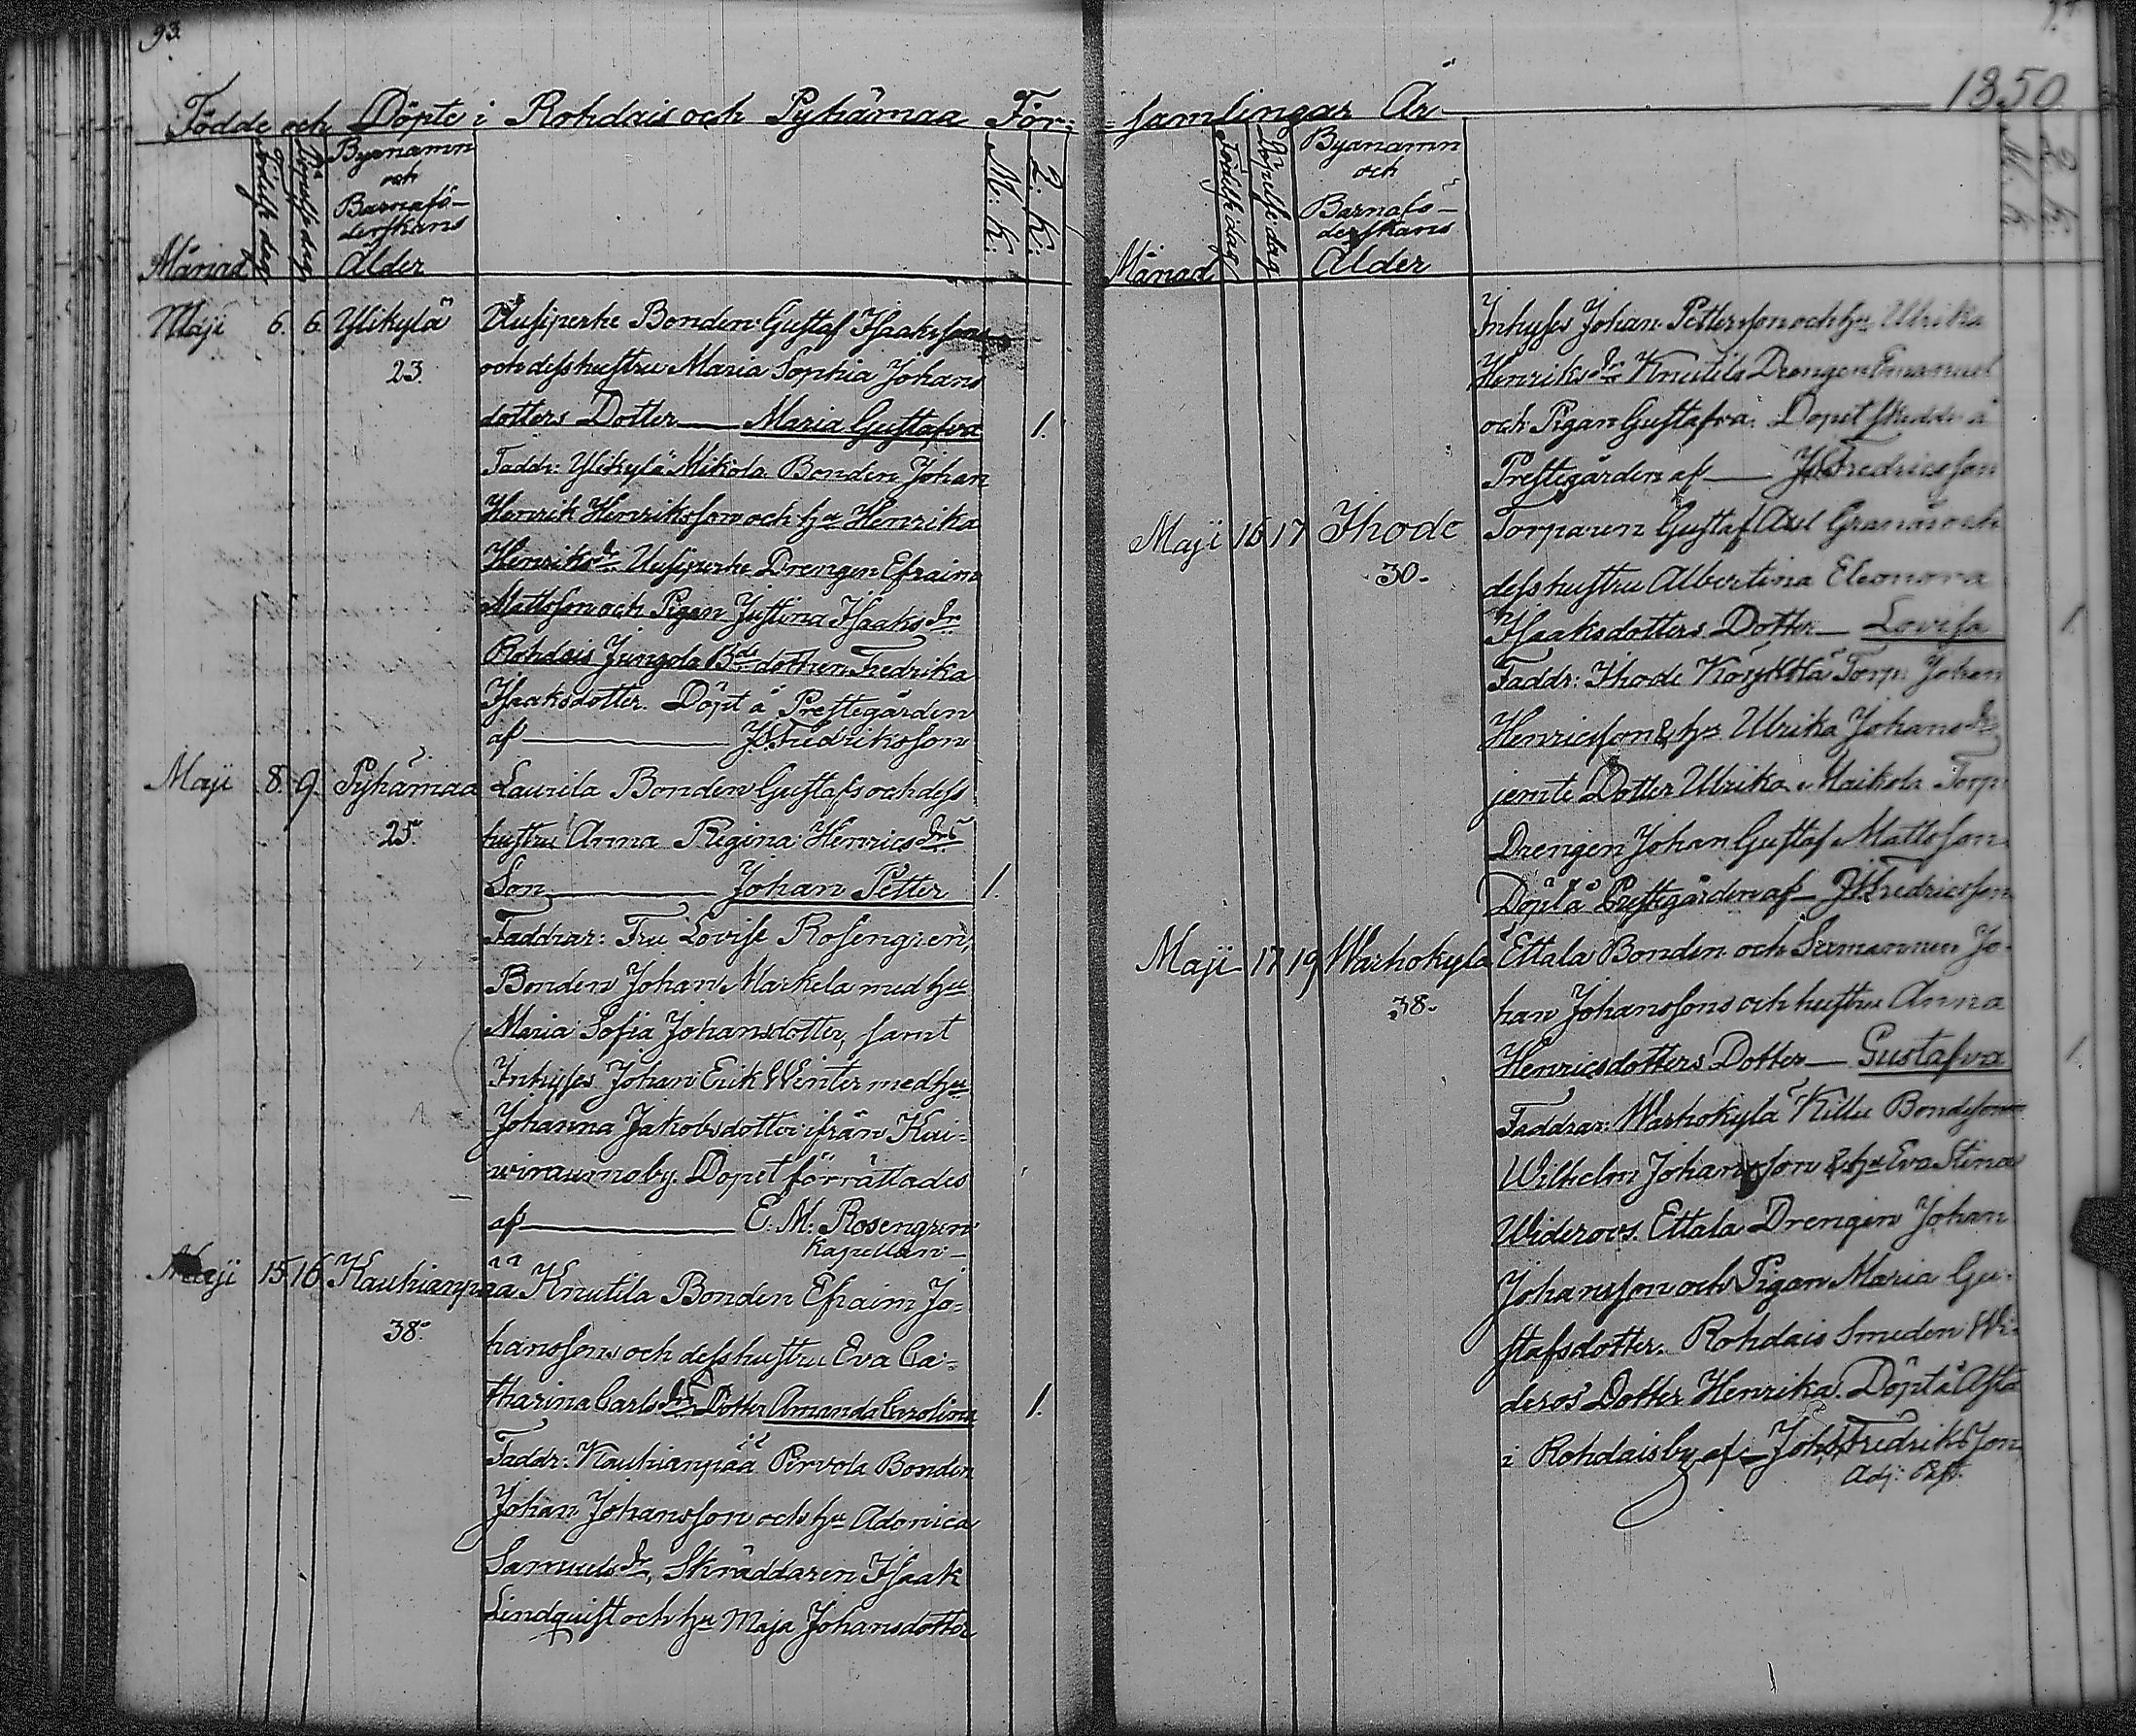 93.
Födde och Döpte i Rohdais och Pyhämaa För-
Månad
Födelse dag
Döpelse dag
Byanamn
och
Barnafö-
derskans
Ålder
M. K.
Q. K.
Maji 6. 6. Ylikylä
23.
Uusiperhe Bonden Gustaf Isaksons
och dess hustru Maria Sophia Johans
dotters Dotter — Maria Gustafva 1.
Faddr: Ylikylä Mikola Bonden Johan
Henrik Henriksson och hu Henrika
Henriksdr Uusiperhe Drengen Efraim
Mattsson och Pigan Justina Isaksdr
Rohdais Jungola Bde dottren Fredrika
Isaksdotter. Döpt å Prestegården
af — JFredriksson
Maji 8. 9. Pyhämaa
25.
Laurila Bonden Gustafs och dess
hustru Anna Regina Henricsdrs
Son — Johan Petter 1.
Faddrar: Fru Lovise Rosengren,
Bonden Johan Markela med hu
Maria Sofia Johansdotter, samt
Inhyses Johan Erik Winter med hu
Johanna Jakobsdotter ifrån Kui-
wiraumo by. Dopet förrättades
af — E. M. Rosengren
Kapellan —
Maji 15. 16. Kauhianpää
38.
Knutila Bonden Efraim Jo-
hanssons och dess hustru Eva Ca-
tharina Carlsdrs Dotter Amanda Carolina 1.
Faddr: Kauhianpää Pirvola Bonden
Johan Johansson och hu Adonica
Samuelsdr, Skräddaren Isaak
Lindquist och hu Maja Johansdotter
samlingar År — 1850
Månad
Födelse dag
Döpelse dag
Byanamn
och
Barnafö-
derskans
Ålder
M. K.
Q. K.
Inhyses Johan Pettersson och hu Ulrika
Henriksdr Knutila Drengen Emanuel
och Pigan Gustafva. Dopet skedde å
Prestegården af — JFredricsson
Maji 16 17 Ihode
30.
Torparen Gustaf Axel Granås och
dess hustru Albertina Eleonora
Isaksdotters Dotter — Lovisa 1.
Faddr: Ihode Torp: Johan
Henricsson & hu Ulrika Johansdr
jemte Dotter Ulrika. Maikola Torp:
Drengen Johan Gustaf Mattsson.
Döpt å Prestegården af — JFredricsson
Maji 17 19 Warhokylä
38.
Ettala Bonden och Sexmannen Jo-
han Johanssons och hustru Anna
Henricsdotters Dotter — Gustafva 1.
Faddrar: Warhokylä Killu Bondeson
Wilhelm Johansson & hu Eva Stina
Wideroos. Ettala Drengen Johan
Johansson och Pigan Maria Gu-
stafsdotter. Rohdais Smeden Wi-
deros Dotter Henrika. Döpt å
i Rohdais by af — Joh. Fredriksson
Adj: Past.